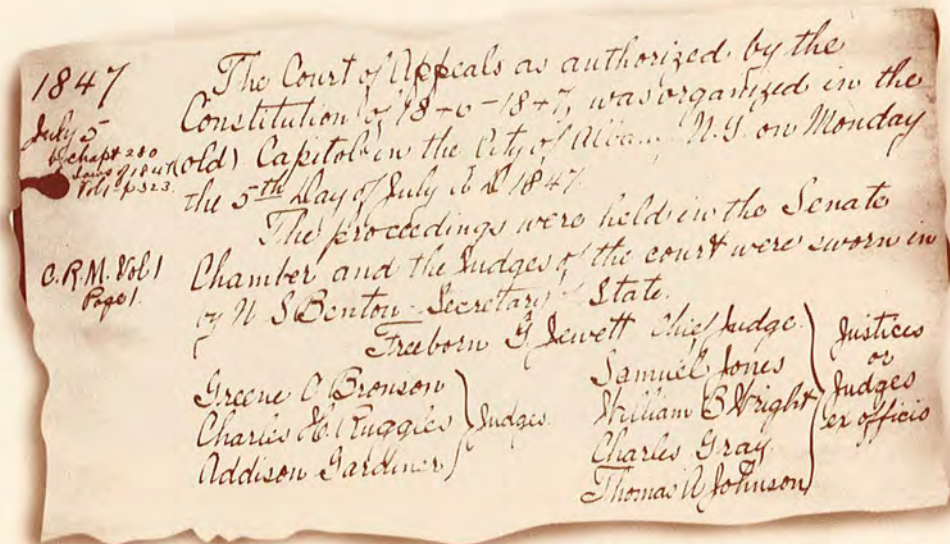 1847
July 5
by chapt 280
Laws of 1847
Vol 1 - p 323.
The Court of Appeals as authorized by the
Constitution of 1846-1847, was organized in the
(old) Capitol in the City of Albany N.Y. on Monday
the 5th Day of July A D 1847.
The proceedings were held in the Senate
C.R.M. Vol 1
Page 1.
Chamber and the Judges of the court were sworn in
by N S Benton - Secretary of State.
Freeborn G. Jewett Chief Judge.
Greene C Bronson
Charles H. Ruggles
Addison Gardiner
Judges.
Samuel Jones
William B Wright
Charles Gray
Thomas A Johnson
Justices
or
Judges
ex officio